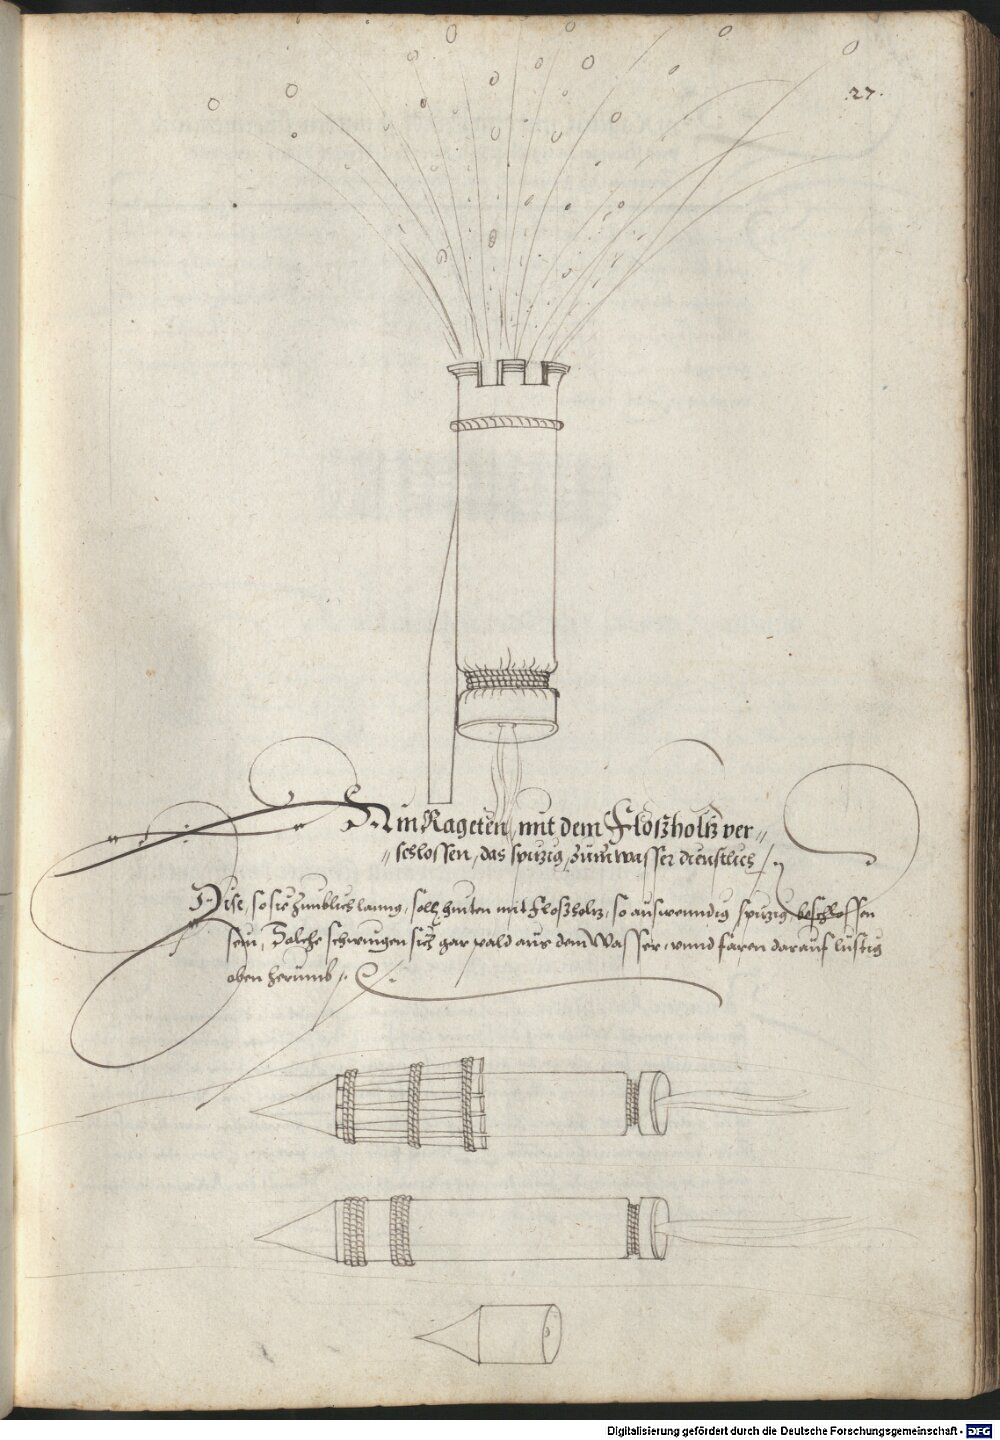 .27.
Ain Rageten, mit dem Floszholtz ver„
„schlossen, das spitzig, zum wasser dienstlich /.,
Dise, so sie zimblich lanng, soll hinten mit Floszholtz, so auswenndig spitzig beschlossen
sein, Solche schwingen sich gar pald aus dem Wasser, vnnd faren darauf lustig
oben herumb /.
Digitalisierung gefördert durch die Deutsche Forschungsgemeinschaft - DFG